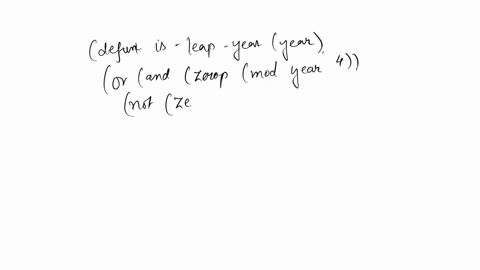 (defun is - leap - year (year).
(or (and (zerop (mod year 4))
(not (ze